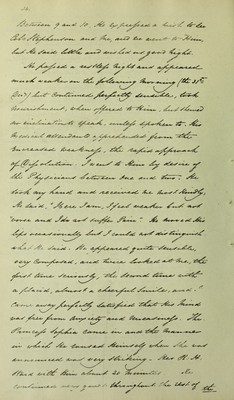 Between 9 and 10. He expressed a wish to see
Col. Stephenson and me, and we went to Him,
but He said little and wished us good Night.
He passed a restless Night and appeared
much weaker on the following Morning (the 21st
but continued perfectly sensible, took
nourishment, when offered to Him, but shewed
no inclination to speak, unless spoken to. His
Medical attendants apprehended from the
increased weakness, the rapid approach
of Dissolution. I went to Him by desire of
the Physicians between One and two. He
took my hand and received me most kindly.
He said, "Here I am, I feel weaker but not
worse and I do not suffer Pain". He moved His
lips occasionally but I could not distinguish
what He said. He appeared quite sensible,
very composed, and twice looked at me, the
first time seriously, the second time with
a placid, almost a cheerful Smile, and I
came away perfectly satisfied that His Mind
was free from anxiety and uneasiness. The
Princess Sophia came in and the Manner
in which He roused Himself when She was
announced was very striking. Her R. H.
with Him about 20 minutes. He
continued very quiet throughout the rest of
the